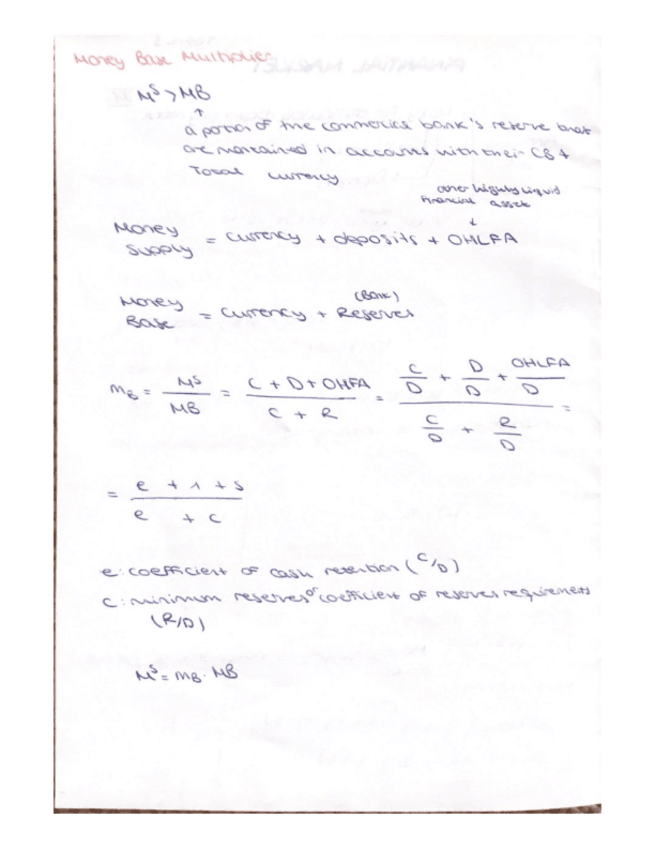 Money Base Multiplier
M^S > MB
↑
a portion of the commercial bank's reserve that
are maintained in accounts with their CB +
Total currency
other highly liquid
financial assets
↓
Money Supply = currency + deposits + OHLFA
(Bank)
Money Base = currency + Reserves
m_B = M^S / MB = (C + D + OHFA) / (C + R) = (C/D + D/D + OHLFA/D) / (C/D + R/D) =
= (e + 1 + s) / (e + c)
e: coefficient of cash retention (C/D)
c: minimum reserves or coefficient of reserves requirements
(R/D)
M^S = m_B · MB